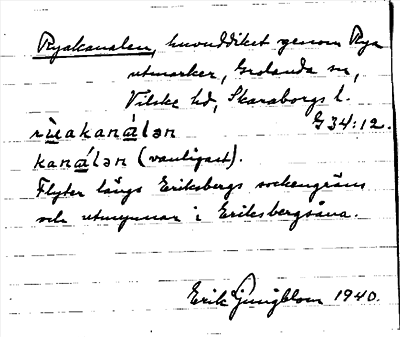 Ryakanalen, huvuddiket genom Rya
utmarker, Grolanda sn,
Vilske hd, Skaraborgs l.
G 34:12.
rùakanálən
kanálən (vanligast).
Flyter längs Eriksbergs sockengräns
och utmynnar i Eriksbergsåna.
Erik Ljungblom 1940.